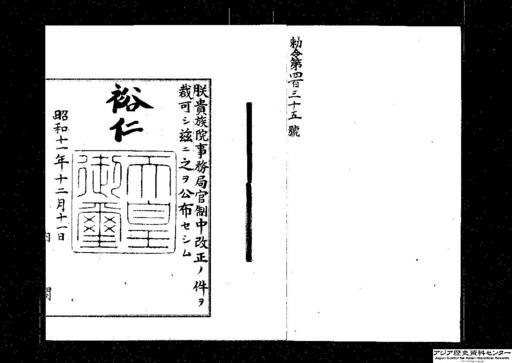 勅令第四百三十五號
朕貴族院事務局官制中改正ノ件ヲ
裁可シ茲ニ之ヲ公布セシム
裕仁
天皇
御璽
昭和十一年十二月十一日
内閣
アジア歴史資料センター
Japan Center for Asian Historical Records